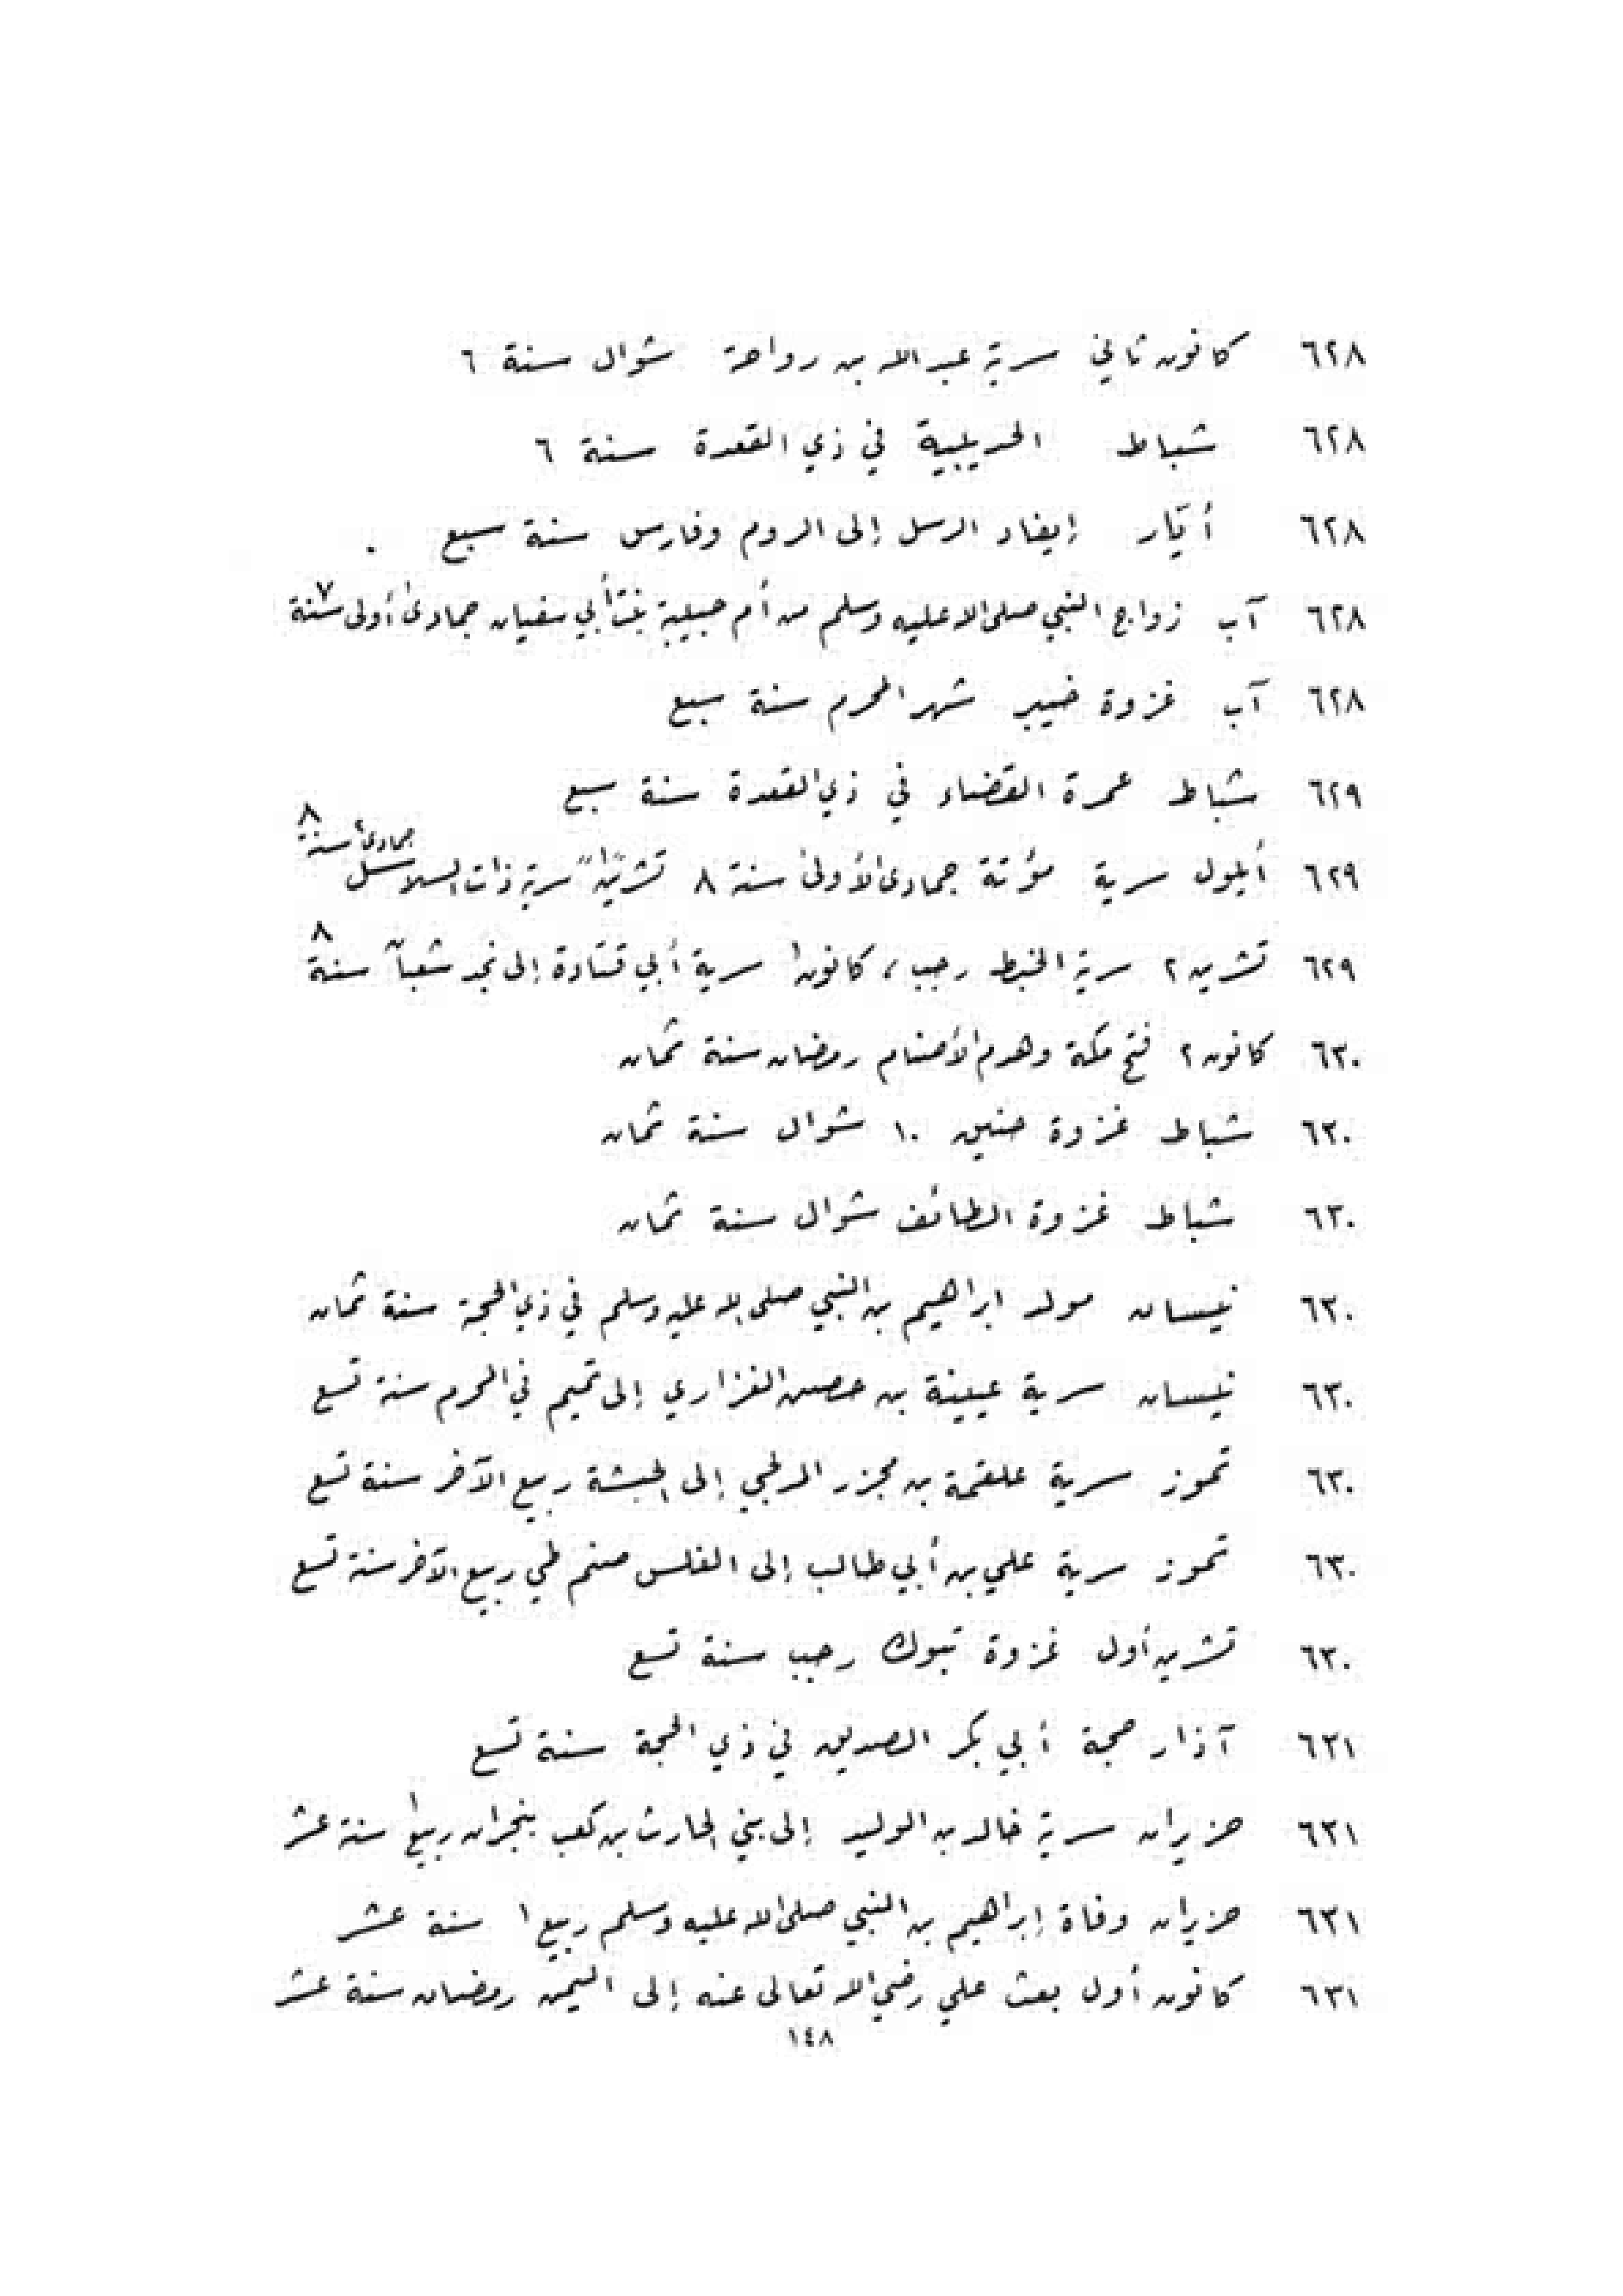 ٦٢٨ كانون ثاني سرية عبد الله بن رواحة شوال سنة ٦
٦٢٨ شباط الحديبية في ذي القعدة سنة ٦
٦٢٨ أيّار إيفاد الرسل إلى الروم وفارس سنة سبع .
٦٢٨ آب زواج النبي صلى الله عليه وسلم من أم حبيبة بنت أبي سفيان جمادى أولى سنة ٧
٦٢٨ آب غزوة خيبر شهر المحرم سنة سبع
٦٢٩ شباط عمرة القضاء في ذي القعدة سنة سبع
٦٢٩ أيلول سرية مؤتة جمادى الأولى سنة ٨ تشرين "١" سرية ذات السلاسل جمادى ٢ سنة ٨
٦٢٩ تشرين ٢ سرية الخبط رجب، كانون ١ سرية أبي قتادة إلى نجد شعبان سنة ٨
٦٣٠ كانون ٢ فتح مكة وهدم الأصنام رمضان سنة ثمان
٦٣٠ شباط غزوة حنين ١٠ شوال سنة ثمان
٦٣٠ شباط غزوة الطائف شوال سنة ثمان
٦٣٠ نيسان مولد ابراهيم بن النبي صلى الله عليه وسلم في ذي الحجة سنة ثمان
٦٣٠ نيسان سرية عيينة بن حصن الفزاري إلى تميم في المحرم سنة تسع
٦٣٠ تموز سرية علقمة بن مجزر المدلجي إلى الحبشة ربيع الآخر سنة تسع
٦٣٠ تموز سرية علي بن أبي طالب إلى الفلس صنم طي ربيع الآخر سنة تسع
٦٣٠ تشرين أول غزوة تبوك رجب سنة تسع
٦٣١ آذار حجة أبي بكر الصديق في ذي الحجة سنة تسع
٦٣١ حزيران سرية خالد بن الوليد إلى بني الحارث بن كعب بنجران ربيع ١ سنة عشر
٦٣١ حزيران وفاة إبراهيم بن النبي صلى الله عليه وسلم ربيع ١ سنة عشر
٦٣١ كانون أول بعث علي رضي الله تعالى عنه إلى اليمن رمضان سنة عشر
١٤٨